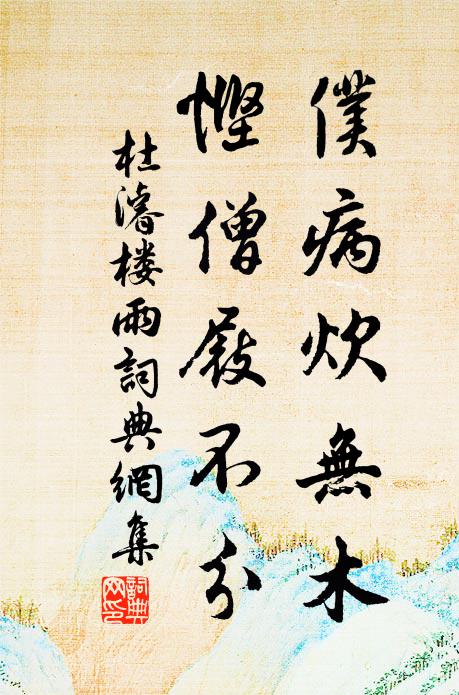 僕病炊無木
慳僧屐不分
杜濬樓雨詞典網集
詞典
网印